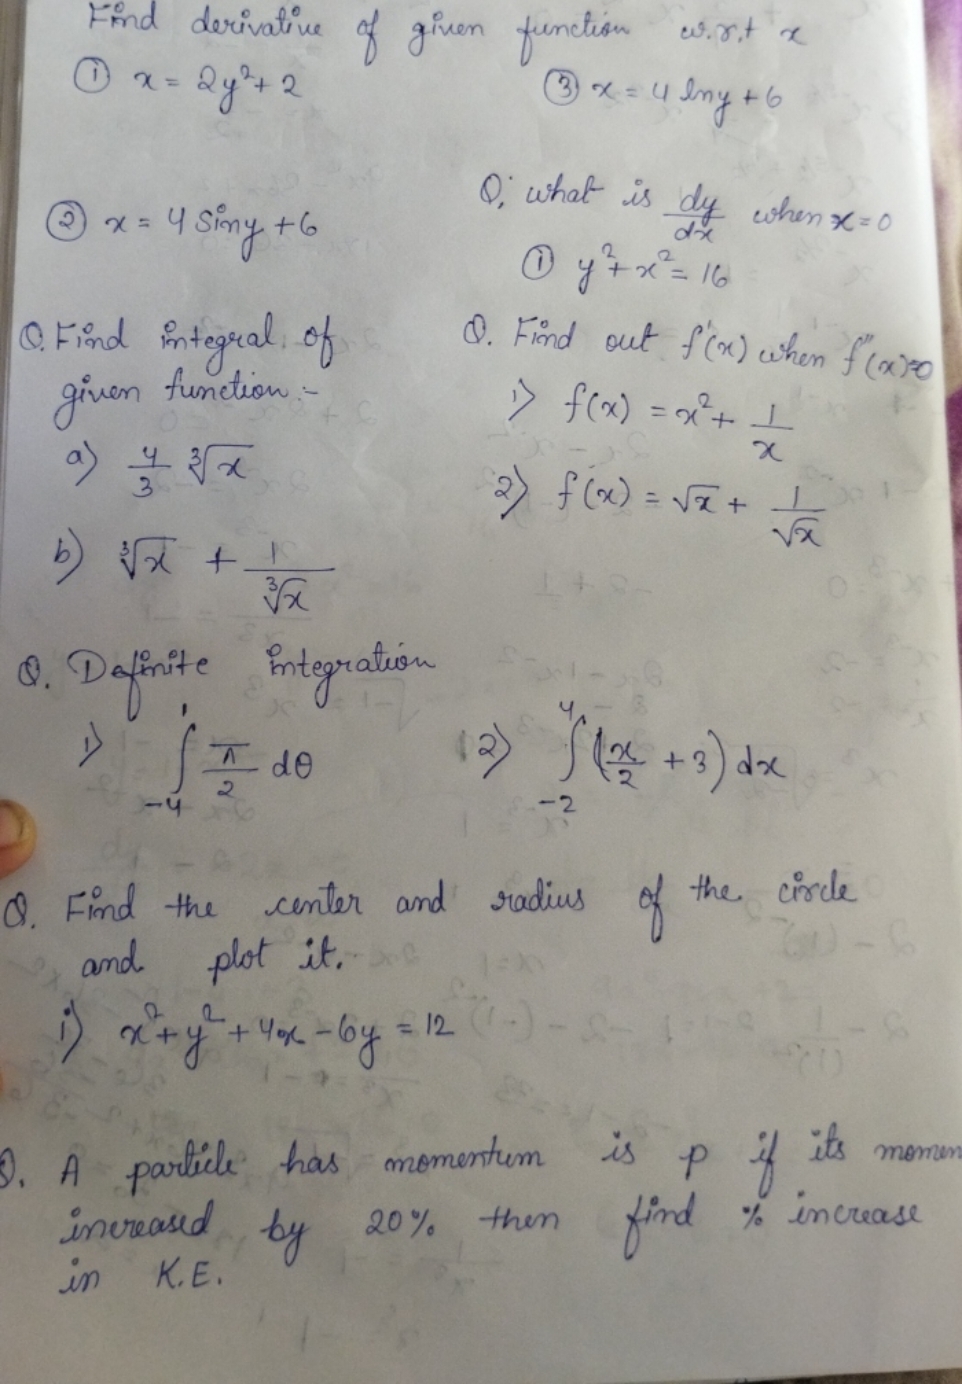 Find derivative of given function w.r.t x
① x = 2y² + 2
③ x = 4 lny + 6
② x = 4 Siny + 6
Q; what is dy/dx when x = 0
① y² + x² = 16
Q. Find integral of
given function :-
a) 4/3 ∛x
b) ∛x + 1/∛x
Q. Find out f'(x) when f''(x)=0
1) f(x) = x² + 1/x
2) f(x) = √x + 1/√x
Q. Definite integration
1) ∫₋₄¹ π/2 dθ
2) ∫₋₂⁴ (x/2 + 3) dx
Q. Find the center and radius of the circle
and plot it.
i) x² + y² + 4x - 6y = 12
Q. A particle has momentum is p if its momen
increased by 20% then find % increase
in K.E.